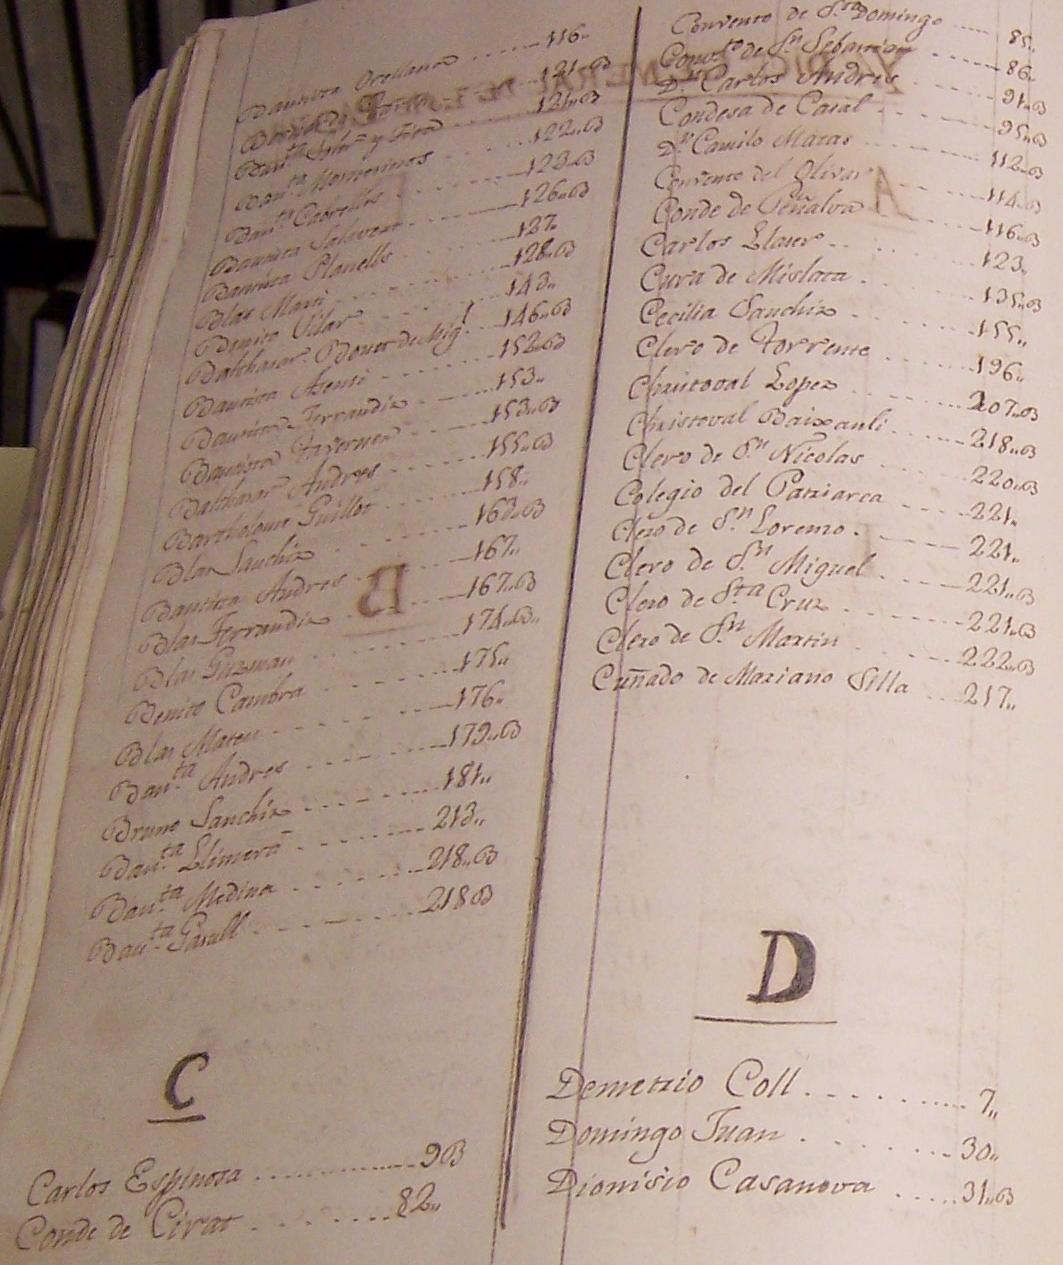 Bautista Orellana 116"
121"B
Bau.ta y 121"B
Bau.ta Monterinos 122"B
Bau.ta Cabrelles 123"B
Bautista Salvent 126"B
Bautista Planells 127"
Blas Marti 128"B
Benito Vilar 143"
Balthasar Bonet de Mig.l 146"B
Bautista Asensi 152"B
Bautista Ferrandiz 153"
Bautista Taverner 153"B
Balthasar Andres 155"B
Bartholome Guillot 158"
Blas Sanchiz 163"B
Bautista Andres 167"
Blas Ferrandiz 167"B
Blas Guzman 174"B
Benito Cambra 175"
Blas Mateu 176"
Bau.ta Andres 179"B
Bruno Sanchiz 181"
Bau.ta Llimera 213"
Bau.ta Medina 218"B
Bau.ta Gasull 218B
C
Carlos Espinosa 9B
Conde de Cirat 82"
Convento de S.ta Domingo 85"
Conv.to de S.n Sebastian 86"
D.n Carlos Andres 91"B
Condesa de Casal 95"B
D.n Camilo Matas 112"B
Convento del Olivar 114"B
Conde de Peñalva 116"B
Carlos Llacer 123"
Cura de Mislata 135"B
Cecilia Sanchiz 155"
Clero de Torrente 196"
Christoval Lopez 207"B
Christoval Baixauli 218"B
Clero de S.n Nicolas 220"B
Colegio del Patriarca 221"
Clero de S.n Lorenzo 221"
Clero de S.n Miguel 221"B
Clero de S.ta Cruz 221"B
Clero de S.n Martin 222"B
Cuñado de Mariano Silla 217"
D
Demetrio Coll 7"
Domingo Juan 30"
Dionisio Casanova 31"B